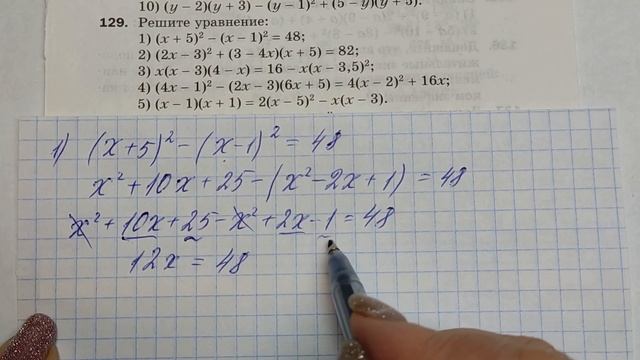 10) (y − 2)(y + 3) − (y − 1)² + (5 − y)(y + 5).
129. Решите уравнение:
1) (x + 5)² − (x − 1)² = 48;
2) (2x − 3)² + (3 − 4x)(x + 5) = 82;
3) x(x − 3)(4 − x) = 16 − x(x − 3,5)²;
4) (4x − 1)² − (2x − 3)(6x + 5) = 4(x − 2)² + 16x;
5) (x − 1)(x + 1) = 2(x − 5)² − x(x − 3).
1) (x+5)² − (x−1)² = 48
x² + 10x + 25 − (x² − 2x + 1) = 48
x² + 10x + 25 − x² + 2x − 1 = 48
12x = 48